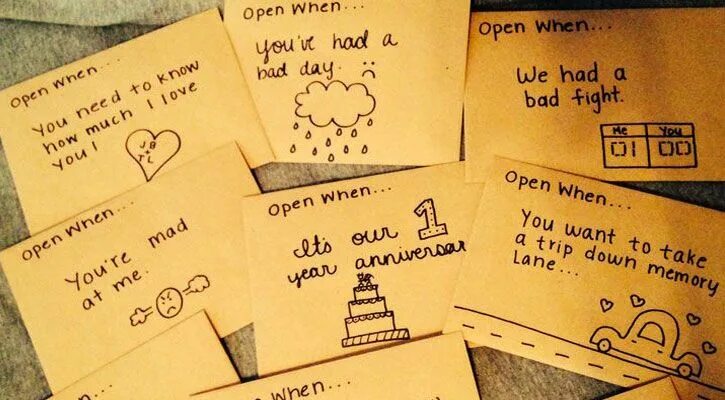 Open When...
You need to know
how much I love
you!
JB
+
TL
Open When...
You've had a
bad day.
Open When...
We had a
bad fight.
Me You
01 00
Open When...
You're mad
at me.
Open When...
It's our 1
year anniversary
Open When...
You want to take
a trip down memory
Lane...
When...